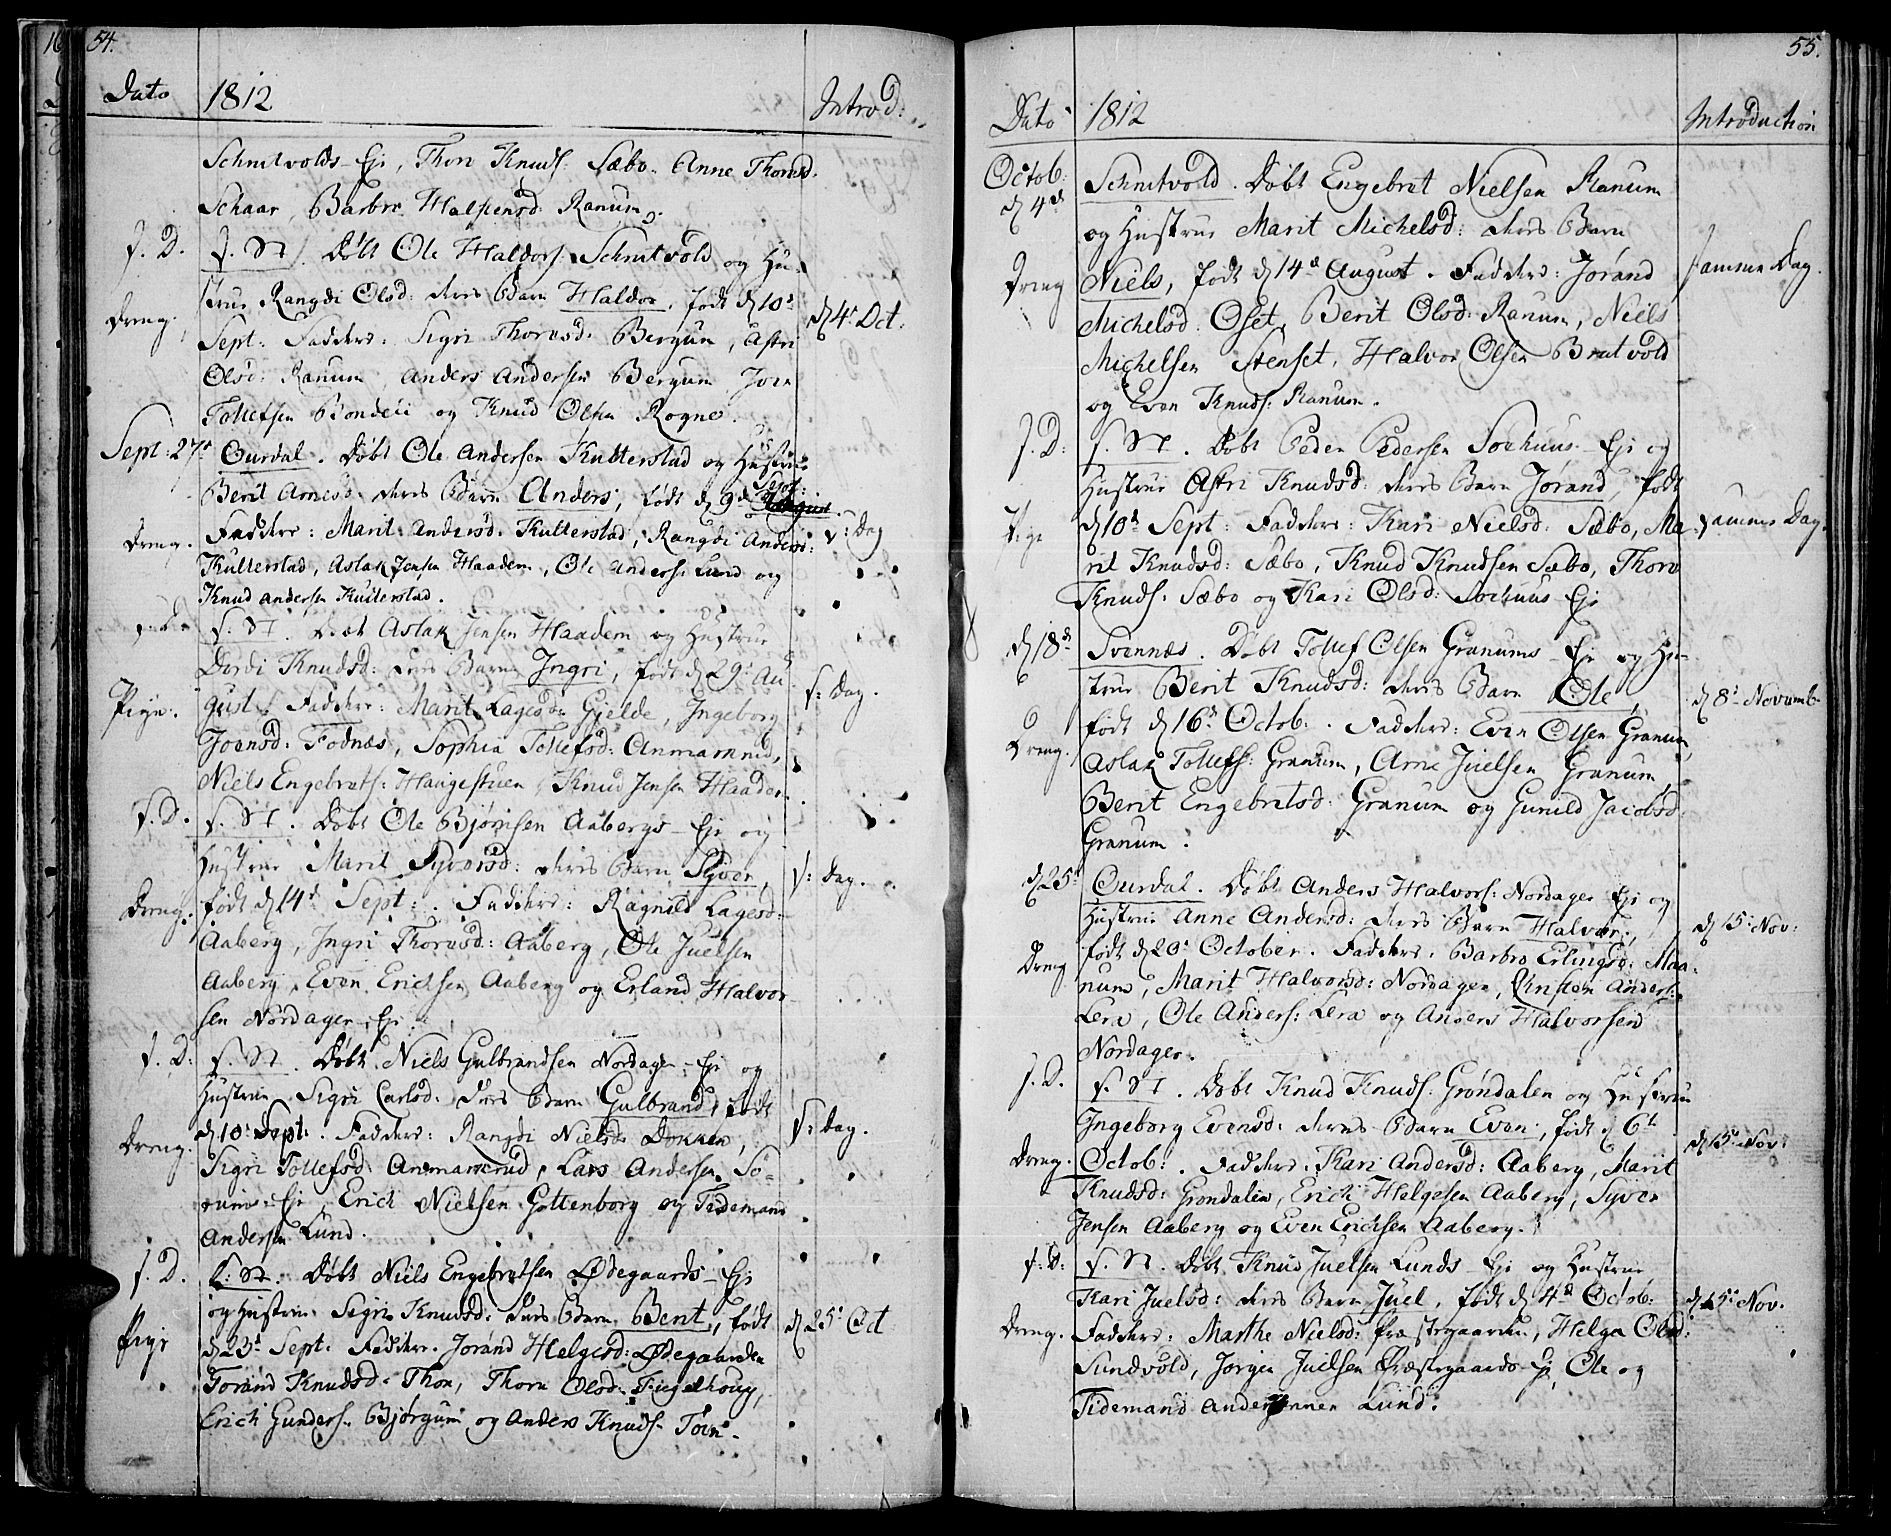 54.
Dato 1812 Introd:
Schrutvolds Eje, Thore Knuds: Sæbo. Anne Thoresd.
Schaar, Barbro Halstensd: Ranum.
s. D. s. St. Døbt Ole Haldors: Schrutvold og Hu-
strue Rangdi Olsd: deres Barn Haldor, født d 10d
Dreng. Sept: Faddere: Sigri Thoresd: Bergum, Astri d 4d Oct:
Olsd: Ranum Anders Andersen Bergum Joen
Tollefsen Bondeli og Knud Olsen Rogne.
Sept: 27d Ourdal. Døbt Ole Andersen Kulterstad og Hustrue
Berit Arnesd: deres Barn Anders, født d 9d Sept:
Dreng. Faddere: Marit Andersd: Kulterstad, Rangdi Andersd: s: Dag
Kulterstad, Aslak Jensen Haadem, Ole Anders: Lund og
Knud Andersen Kulterstad.
s. St. Døbt Aslak Jensen Haadem og Hustrue
Dordi Knudsd: deres Barn Ingri, født d 29d Au-
Pige. gust. Faddere: Marit Lagesd: Gjelde, Ingeborg s: Dag.
Joensd: Fodnæs, Sophia Tollefsd: Anmarkrud,
Niels Engebrets: Haugestuen, Knud Jensen Haadem.
s. D. s. St. Døbt Ole Bjørnsen Aabergs-Eje og
Hustrue Marit Syversd: deres Barn Syver, s: Dag.
Dreng. født d 14d Sept: Faddere: Ragnild Lagesd:
Aaberg, Ingri Thoresd: Aaberg, Ole Juelsen
Aaberg, Even Erichsen Aaberg og Erland Halvor-
sen Nordager-Eje.
s. D: s. St. Døbt Niels Gulbrandsen Nordager-Eje og
Hustrue Sigri Carlsd: deres Barn Gulbrand, født
Dreng. d 10d Sept: Faddere: Rangdi Nielsd: Dokken, s: Dag.
Sigri Tollefsd: Anmarkrud, Lars Andersen
Eje, Erich Nielsen Gottenborg og Tidemand
Andersen Lund.
s. D. s. St. Døbt Niels Engebretsen Ødegaards-Eje
og Hustrue Sigri Knudsd: deres Barn Berit, født
Pige d 23d Sept: Faddere: Jørand Helgesd: Ødegaarden d 25d Oct
Gorand Knudsd: Thon, Thore Olsd: Fuglehoug,
Erich Gunders: Bjørgum og Anders Knuds: Tøen.
55.
Dato 1812 Introduction
Octob: d 4d Schrutvold. Døbt Engebret Nielsen Ranum
og Hustrue Marit Michelsd: deres Barn
Dreng Niels, født d 14d August. Faddere: Jørand samme Dag.
Michelsd: Øset, Berit Olsd: Ranum, Niels
Michelsen Stenset, Halvor Olsen Brutvold
og Even Knuds: Ranum.
s. D: s. St. Døbt Peder Pedersen Soehuus-Eje og
Hustrue Astri Knudsd: deres Barn Jørand, født
Pige d 10d Sept: Faddere: Kari Nielsd: Sæbo, Ma- samme Dag.
rit Knudsd: Sæbo, Knud Knudsen Sæbo, Thore
Knuds: Sæbo og Kari Olsd: Soehuus-Eje
d 18d Svennæs. Døbt Tollef Olsen Granums-Eje og Hu-
strue Berit Knudsd: deres Barn Ole, d 8d Novemb.
Dreng. født d 16d Octob: Faddere: Even Olsen Granum,
Aslak Tollefs: Granum, Arne Juelsen Granum
Berit Engebretsd: Granum og Gunild Jacobsd:
Granum.
d 25d Ourdal. Døbt Anders Halvors: Nordager Eje og
Hustrue Anne Andersd: deres Barn Halvor, d 15d Nov:
Dreng født d 20d October. Faddere: Barbro Erlingsd: Maa-
num, Marit Halvorsd: Nordager, Christen Anders:
Lera, Ole Anders: Lera og Anders Halvorsen
Nordager.
s. D. s. St. Døbt Knud Knuds: Grøndalen og Hustrue
Ingeborg Evensd: deres Barn Even, født d 6d d 15d Nov:
Dreng. Octob: Faddere: Kari Andersd: Aaberg, Marit
Knudsd: Grøndalen, Erich Helgesen Aaberg, Syver
Jensen Aaberg og Even Erichsen Aaberg.
s: D: s. St. Døbt Knud Juelsen Lunds Eje og Hustrue
Kari Juelsd: deres Barn Juel, født d 4d Octob: d 15d Nov.
Dreng. Faddere: Marthe Nielsd: Præstegaarden, Helga Olsd:
Sundvold, Jørgen Juelsen Præstegaards-Eje, Ole og
Tidemand Andersønner Lund.